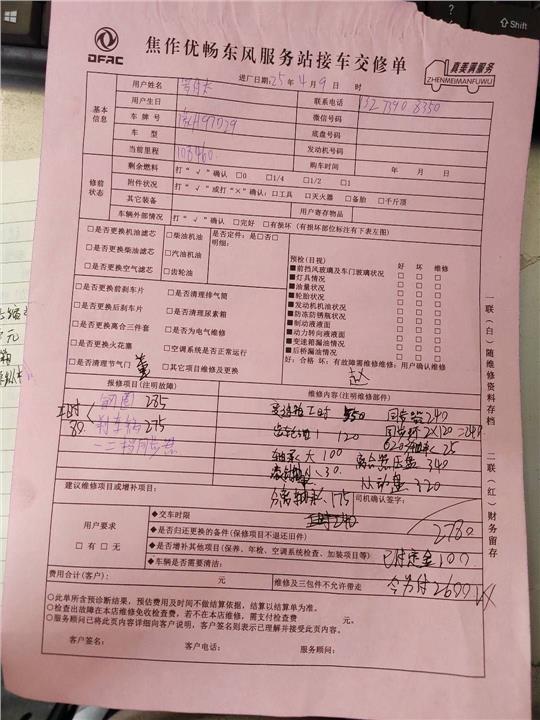 DFAC
焦作优畅东风服务站接车交修单
真美满服务
ZHENMEIMANFUWU
进厂日期:25年4月9日 时
基本信息
用户姓名
联系电话
用户生日
微信号码
车 牌 号
底盘号码
车 型
发动机号码
当前里程 103460
购车时间 年 月 日
修前状态
剩余燃料 打“√”确认 □0 □1/4 □1/2 □1
附件状况 打“√”或打“×”确认:□工具 □灭火器 □备胎 □千斤顶
其它装备
用户寄存物品
车辆外部情况 打“√”确认 □完好 □有损坏 (有损坏部位标注有下表左图)
□是否更换机油滤芯 □柴油机油 是否定件:是□否□
明细:
□是否更换柴油滤芯 □汽油机油
□是否更换空气滤芯 □齿轮油
□是否更换前刹车片 □是否清理排气筒
□是否更换后刹车片 □是否清理尿素箱
□是否更换离合三件套 □是否为电气维修
□是否更换火花塞 □空调系统是否正常运行
□是否清理节气门 □其它项目维修及更换
预检(目视) 好 坏 维修
■前挡风玻璃及车门玻璃状况
■灯具情况
■油量状况
■轮胎状况
■发动机机油状况
■防冻防锈瓶状况
■制动液液面
■动力转向液液面
■变速箱漏油情况
■后桥漏油情况
好:合格 坏:有故障需维修维修:用户确认维修
报修项目(注明故障)
285
工时 80
275
维修内容(注明维修部件)
变速箱工时 550 同步器240
齿轮油1 120 同步环2×120=240
620轴承 25
轴承大100 离合器压盘 340
小30 从动盘 320
分离轴承 175
工时240
建议维修项目或增补项目:
司机确认签字:
2780
用户要求
□有 □无
◆交车时限
◆是否归还更换的备件(保修项目不退还旧件)
◆是否增补其他项目(保养、年检、空调系统检查、加装项目等)
◆车辆是否需要清洁:
已付定金100
今另付2600
费用合计(客户): 元
维修及三包件不允许带走
○此单所含预诊断结果,预估费用及时间不做结算依据,结算以结算单为准。
○检查出故障在本店维修免收检查费,若不在本店维修,需支付检查费 元。
○服务顾问已将此页内容详细向客户说明,客户签名则表示已理解并接受此页内容。
客户签名: 客户电话: 服务顾问:
一联(白)随维修资料存档 二联(红)财务留存
Shift